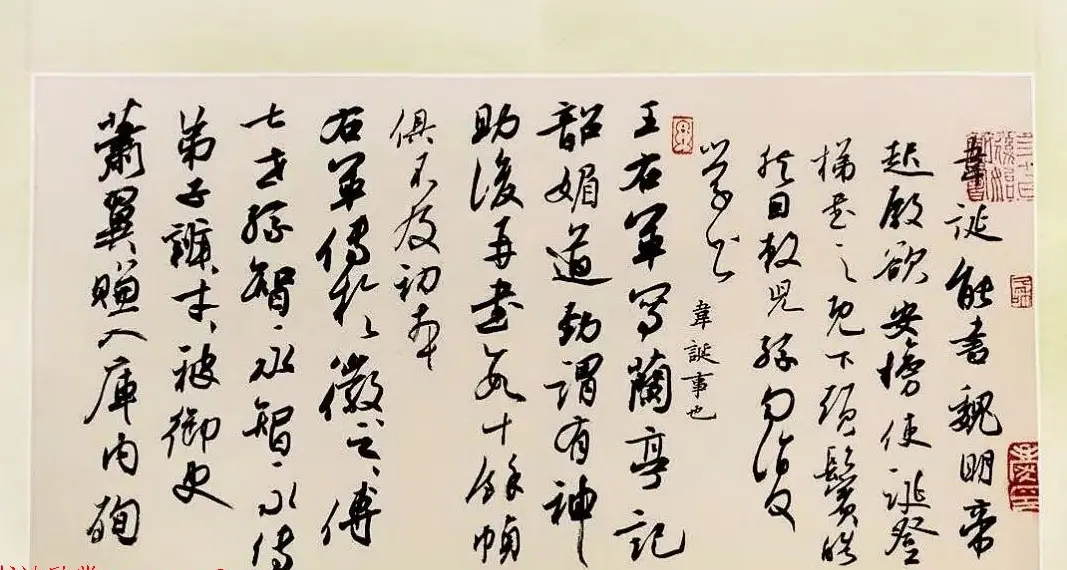 韋誕能書魏明帝
起殿欲安榜使誕登
梯書之既下頭鬢皓
然因敕兒孫勿復
學書
韋誕事也
王右軍寫蘭亭記
韶媚遒勁謂有神
助後再書數十餘幀
俱不及初本
右軍傳於徽之、傳
七世孫智永智永傳
弟子辯才、被御史
蕭翼賺入庫內殉